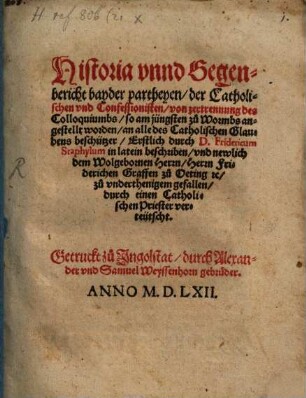 H. ref. 806 (2.
1.
Historia vnnd Gegen-
bericht bayder partheyen/ der Catholi-
schen vnd Confessionisten/ von zertrennung des
Colloquiumbs/ so am jüngsten zů Wormbs an-
gestellt worden/ an alle des Catholischen Glau-
bens beschützer/ Erstlich durch D. Fridericum
Staphylum in latein beschriben/ vnd newlich
dem Wolgebornen Herrn/ Herrn Fri-
derichen Graffen zů Oeting ꝛc/
zů vnderthenigem gefallen/
durch einen Catholi-
schen Priester ver-
teütscht.
Getruckt zů Ingolstat/ durch Alexan-
der vnd Samuel Weyssenhorn gebrüder.
ANNO M. D. LXII.